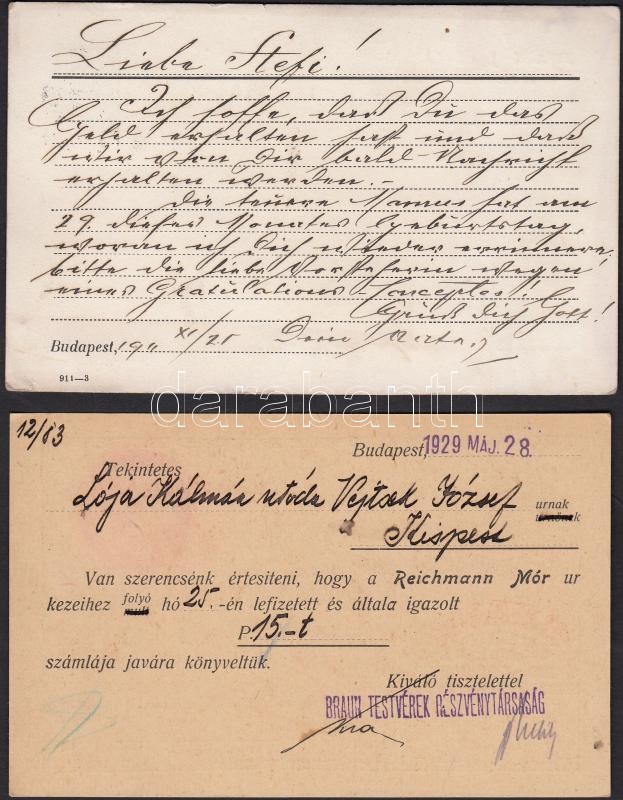 Liebe Stefi!
Ich hoffe, daß Du das
Geld erhalten hast und daß
wir von Dir bald Nachricht
erhalten werden. –
Die teuere Mamus hat am
29. dieses Monates Geburtstag,
woran ich Dich wieder erinnere,
bitte die liebe Vorsteherin wegen
eines Gratulations-Conceptes!
Grüß Dich Gott!
Budapest, 191 XI/25 Dein
911—3
darabanth
12/83
Budapest, 1929 MÁJ. 28.
Tekintetes
Lója Kálmán utóda Vejtsek József urnak
Kispest
Van szerencsénk értesiteni, hogy a Reichmann Mór ur
kezeihez folyó hó 25.-én lefizetett és általa igazolt
P. 15.-t
számlája javára könyveltük.
Kiváló tisztelettel
BRAUN TESTVÉREK RÉSZVÉNYTÁRSASÁG